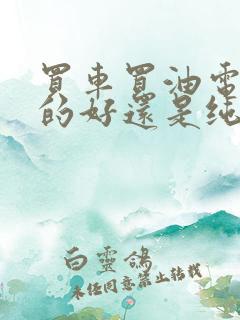 買車買油電
的好還是纯
白靈鴿
未经同意禁止转载